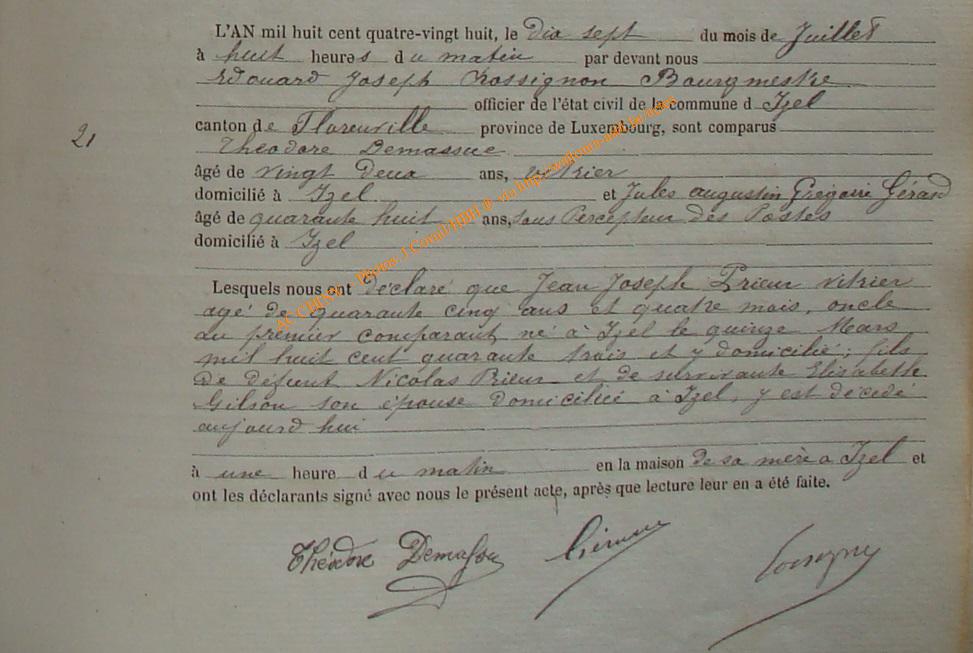 L'AN mil huit cent quatre-vingt huit, le dix sept du mois de Juillet
à huit heures du matin par devant nous
Edouard Joseph Rossignon Bourgmestre
officier de l'état civil de la commune d Izel
21
canton de Florenville province de Luxembourg, sont comparus
Théodore Demassue
âgé de vingt deux ans, vitrier
domicilié à Izel et Jules augustin Grégoire Gérard
âgé de quarante huit ans, sous Percepteur des Postes
domicilié à Izel
Lesquels nous ont déclaré que Jean Joseph Prieur vitrier
agé de quarante cinq ans et quatre mois, oncle
du premier comparant, né à Izel le quinze Mars
mil huit cent quarante trois et y domicilié ; fils
de défunt Nicolas Prieur et de survivante Elisabeth
Gilson son épouse domiciliée à Izel, y est décédé
aujourd'hui
à une heure du matin en la maison de sa mère à Izel et
ont les déclarants signé avec nous le présent acte, après que lecture leur en a été faite.
Théodore Demassue
AC CHINY - Photos J.Cornil/HDH ® via